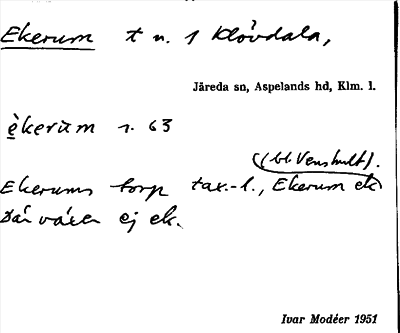 Ekerum t n. 1 Klövdala,
Järeda sn, Aspelands hd, Klm. l.
èkerùm s. 63
(bl. Venshult).
Ekerums torp tax.-l., Ekerum ek
där växer ej ek.
Ivar Modéer 1951